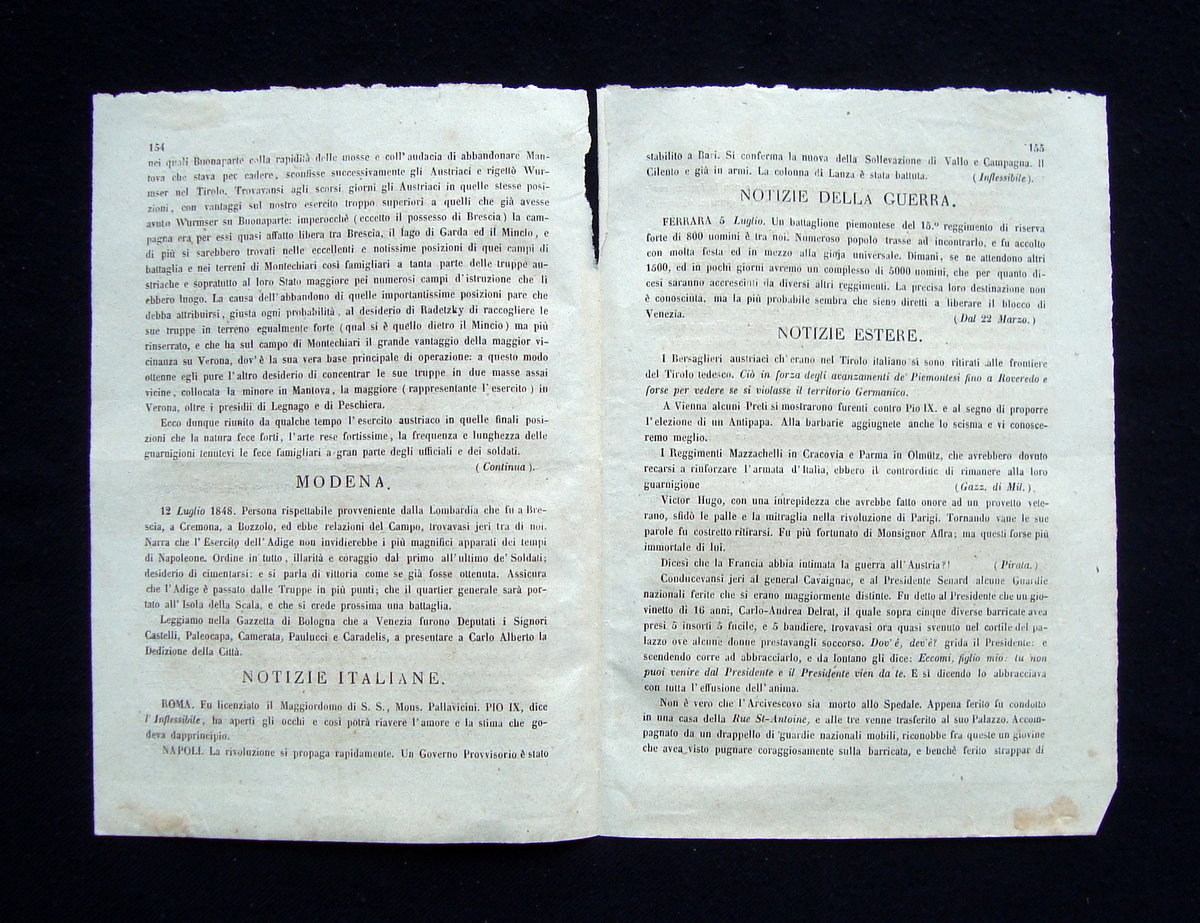 154
nei quali Buonaparte colla rapidità delle mosse e coll'audacia di abbandonare Man-
tova che stava per cadere, sconfisse successivamente gli Austriaci e rigettò Wur-
mser nel Tirolo. Trovavansi agli scorsi giorni gli Austriaci in quelle stesse posi-
zioni, con vantaggi sul nostro esercito troppo superiori a quelli che già avesse
avuto Wurmser su Buonaparte: imperocchè (eccetto il possesso di Brescia) la cam-
pagna era per essi quasi affatto libera tra Brescia, il lago di Garda ed il Mincio, e
di più si sarebbero trovati nelle eccellenti e notissime posizioni di quei campi di
battaglia e nei terreni di Montechiari così famigliari a tanta parte delle truppe au-
striache e sopratutto al loro Stato maggiore pei numerosi campi d'istruzione che li
ebbero luogo. La causa dell'abbandono di quelle importantissime posizioni pare che
debba attribuirsi, giusta ogni probabilità, al desiderio di Radetzky di raccogliere le
sue truppe in terreno egualmente forte (qual si è quello dietro il Mincio) ma più
rinserrato, e che ha sul campo di Montechiari il grande vantaggio della maggior vi-
cinanza su Verona, dov'è la sua vera base principale di operazione: a questo modo
ottenne egli pure l'altro desiderio di concentrare le sue truppe in due masse assai
vicine, collocata la minore in Mantova, la maggiore (rappresentante l'esercito) in
Verona, oltre i presidii di Legnago e di Peschiera.
Ecco dunque riunito da qualche tempo l'esercito austriaco in quelle finali posi-
zioni che la natura fece forti, l'arte rese fortissime, la frequenza e lunghezza delle
guarnigioni tenutevi le fece famigliari a gran parte degli ufficiali e dei soldati.
(Continua).
MODENA.
12 Luglio 1848. Persona rispettabile provveniente dalla Lombardia che fu a Bre-
scia, a Cremona, a Bozzolo, ed ebbe relazioni del Campo, trovavasi jeri tra di noi.
Narra che l'Esercito dell'Adige non invidierebbe i più magnifici apparati dei tempi
di Napoleone. Ordine in tutto, illarità e coraggio dal primo all'ultimo de' Soldati;
desiderio di cimentarsi: e si parla di vittoria come se già fosse ottenuta. Assicura
che l'Adige è passato dalle Truppe in più punti; che il quartier generale sarà por-
tato all'Isola della Scala, e che si crede prossima una battaglia.
Leggiamo nella Gazzetta di Bologna che a Venezia furono Deputati i Signori
Castelli, Paleocapa, Camerata, Paulucci e Caradelis, a presentare a Carlo Alberto la
Dedizione della Città.
NOTIZIE ITALIANE.
ROMA. Fu licenziato il Maggiordomo di S. S., Mons. Pallavicini. PIO IX, dice
l'Inflessibile, ha aperti gli occhi e così potrà riavere l'amore e la stima che go-
deva dapprincipio.
NAPOLI. La rivoluzione si propaga rapidamente. Un Governo Provvisorio è stato
155
stabilito a Bari. Si conferma la nuova della Sollevazione di Vallo e Campagna. Il
Cilento e già in armi. La colonna di Lanza è stata battuta. (Inflessibile).
NOTIZIE DELLA GUERRA.
FERRARA 5 Luglio. Un battaglione piemontese del 15.º reggimento di riserva
forte di 800 uomini è tra noi. Numeroso popolo trasse ad incontrarlo, e fu accolto
con molta festa ed in mezzo alla gioja universale. Dimani, se ne attendono altri
1500, ed in pochi giorni avremo un complesso di 5000 uomini, che per quanto di-
cesi saranno accresciuti da diversi altri reggimenti. La precisa loro destinazione non
è conosciuta, ma la più probabile sembra che sieno diretti a liberare il blocco di
Venezia. (Dal 22 Marzo.)
NOTIZIE ESTERE.
I Bersaglieri austriaci ch'erano nel Tirolo italiano si sono ritirati alle frontiere
del Tirolo tedesco. Ciò in forza degli avanzamenti de' Piemontesi fino a Roveredo e
forse per vedere se si violasse il territorio Germanico.
A Vienna alcuni Preti si mostrarono furenti contro Pio IX. e al segno di proporre
l'elezione di un Antipapa. Alla barbarie aggiugnete anche lo scisma e vi conosce-
remo meglio.
I Reggimenti Mazzachelli in Cracovia e Parma in Olmütz, che avrebbero dovuto
recarsi a rinforzare l'armata d'Italia, ebbero il contrordine di rimanere alla loro
guarnigione (Gazz. di Mil.).
Victor Hugo, con una intrepidezza che avrebbe fatto onore ad un provetto vete-
rano, sfidò le palle e la mitraglia nella rivoluzione di Parigi. Tornando vane le sue
parole fu costretto ritirarsi. Fu più fortunato di Monsignor Affra; ma questi forse più
immortale di lui.
Dicesi che la Francia abbia intimata la guerra all'Austria?! (Pirata.)
Conducevansi jeri al general Cavaignac, e al Presidente Senard alcune Guardie
nazionali ferite che si erano maggiormente distinte. Fu detto al Presidente che un gio-
vinetto di 16 anni, Carlo-Andrea Delrat, il quale sopra cinque diverse barricate avea
presi 5 insorti 5 fucile, e 5 bandiere, trovavasi ora quasi svenuto nel cortile del pa-
lazzo ove alcune donne prestavangli soccorso. Dov'é, dov'é? grida il Presidente: e
scendendo corre ad abbracciarlo, e da lontano gli dice: Eccomi, figlio mio: tu non
puoi venire dal Presidente e il Presidente vien da te. E sì dicendo lo abbracciava
con tutta l'effusione dell'anima.
Non è vero che l'Arcivescovo sia morto allo Spedale. Appena ferito fu condotto
in una casa della Rue St-Antoine, e alle tre venne trasferito al suo Palazzo. Accom-
pagnato da un drappello di guardie nazionali mobili, riconobbe fra queste un giovine
che avea visto pugnare coraggiosamente sulla barricata, e benchè ferito strappar di